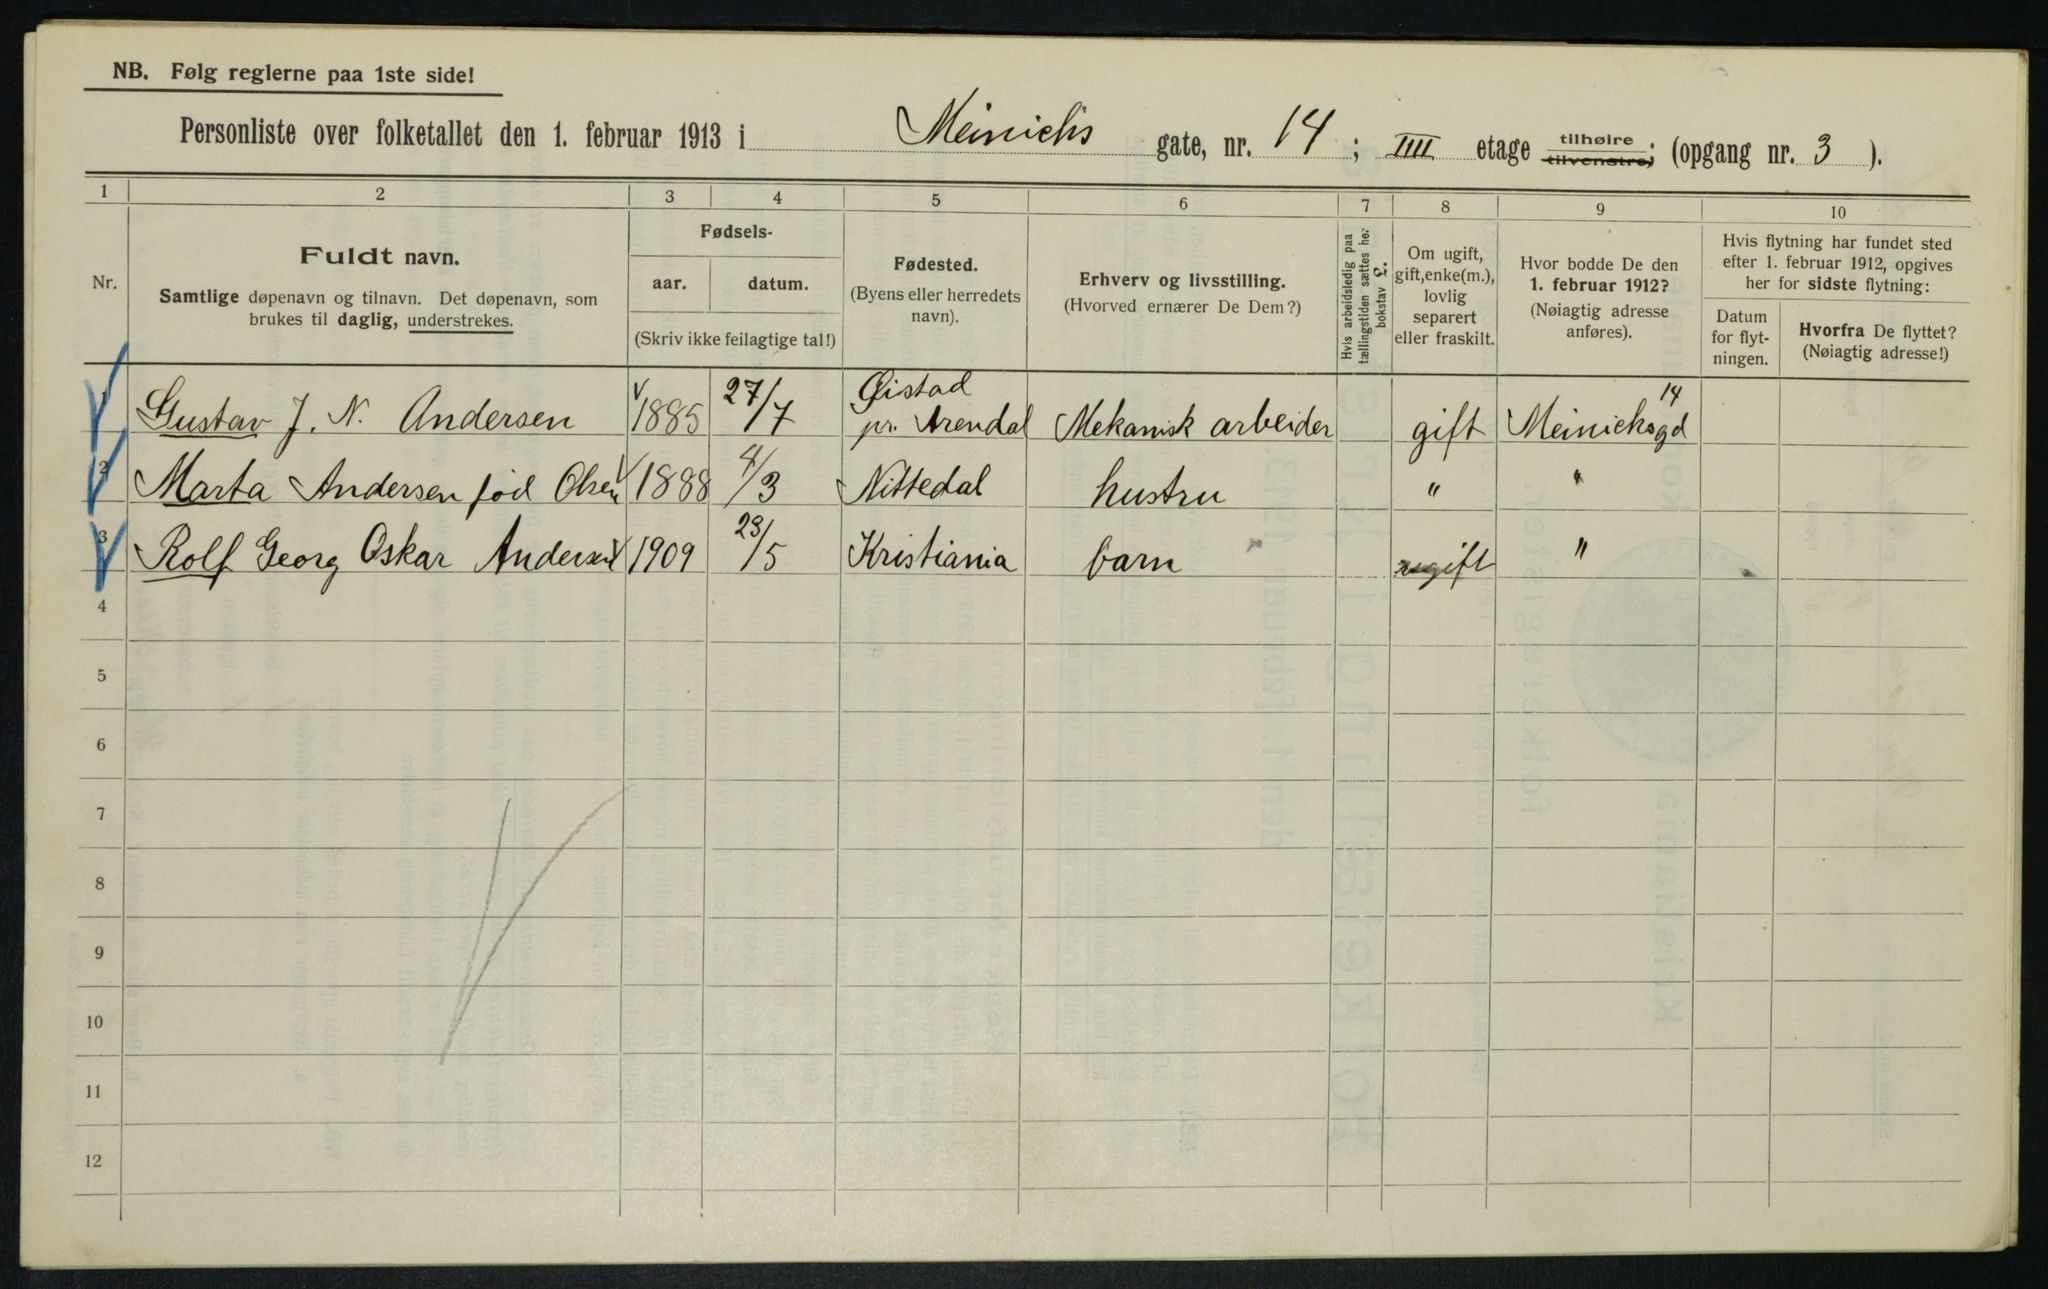 NB. Følg reglerne paa 1ste side!
Personliste over folketallet den 1. februar 1913 i Meinichs gate, nr. 14 ; IIII etage tilhøire. tilvenstre, (opgang nr. 3 ).
1 2 3 4 5 6 7 8 9 10
Nr.
Fuldt navn.
Samtlige døpenavn og tilnavn. Det døpenavn, som
brukes til daglig, understrekes.
Fødsels-
aar. datum.
(Skriv ikke feilagtige tal!)
Fødested.
(Byens eller herredets
navn).
Erhverv og livsstilling.
(Hvorved ernærer De Dem?)
Hvis arbeidsledig paa
tællingstiden sættes her
bokstav L.
Om ugift,
gift, enke(m.),
lovlig
separert
eller fraskilt.
Hvor bodde De den
1. februar 1912?
(Nøiagtig adresse
anføres).
Hvis flytning har fundet sted
efter 1. februar 1912, opgives
her for sidste flytning:
Datum
for flyt-
ningen.
Hvorfra De flyttet?
(Nøiagtig adresse!)
1 Gustav J. N. Andersen 1885 27/7 Øistad pr. Arendal Mekanisk arbeider gift Meinicksgd 14
2 Marta Andersen fød Olsen 1888 4/3 Nittedal hustru " "
3 Rolf Georg Oskar Andersen 1909 23/5 Kristiania barn ugift "
4
5
6
7
8
9
10
11
12